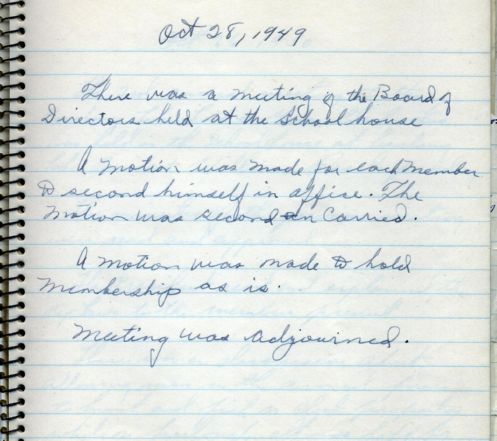 Oct 28, 1949
There was a meeting of the Board of
Directors held at the School house
A motion was made for each member
to second himself in office. The
motion was second an Carried.
A motion was made to hold
membership as is.
Meeting was adjourned.